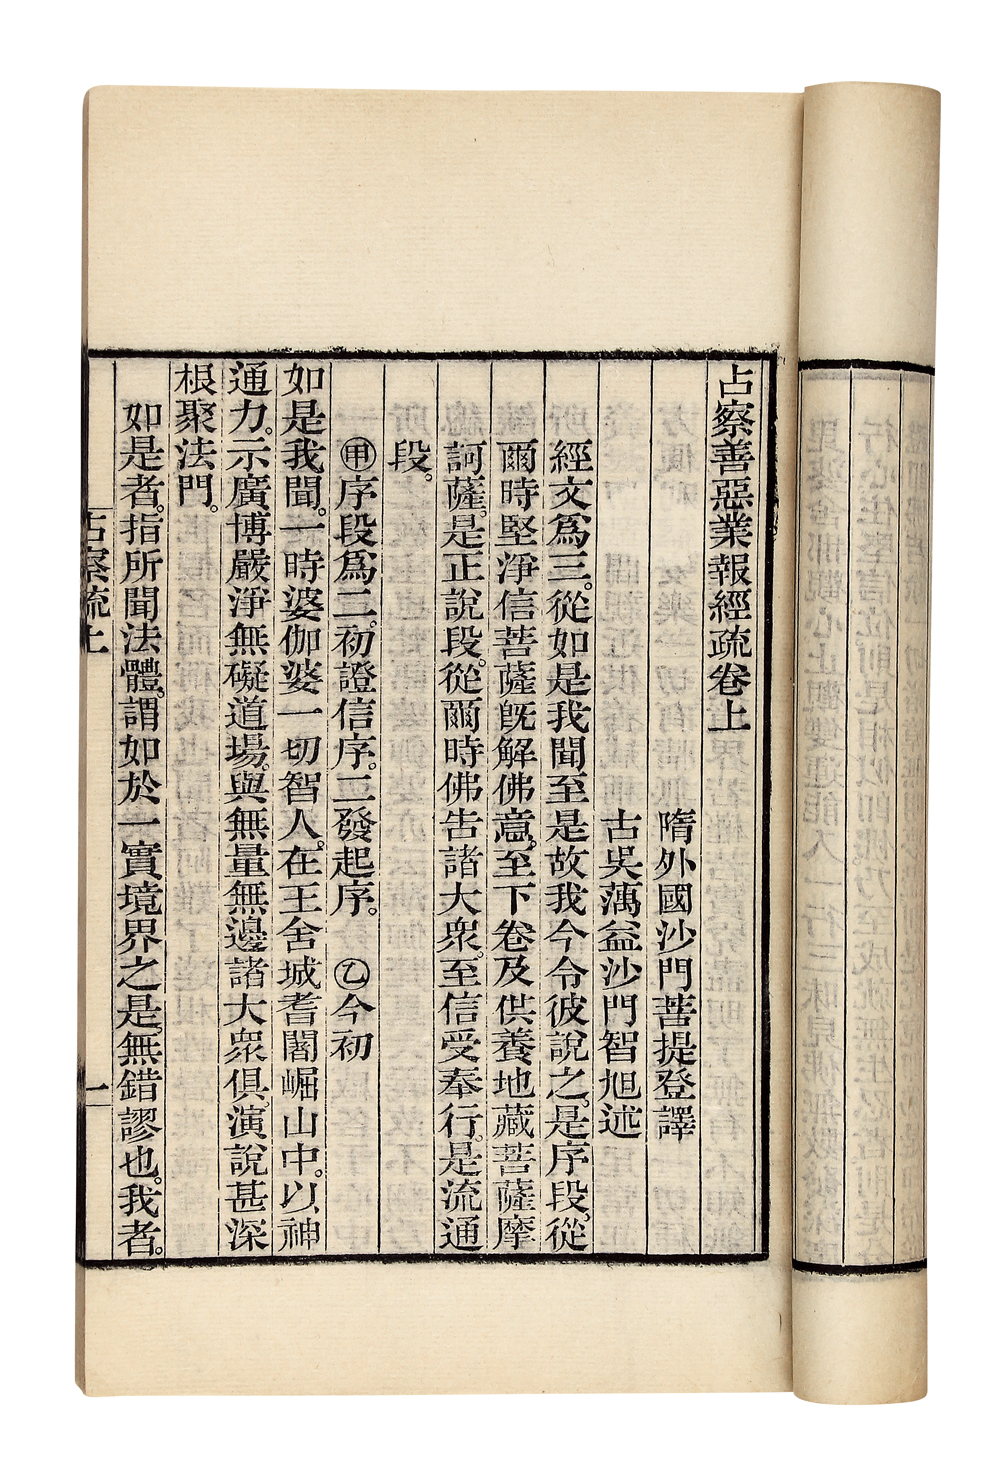 占察善惡業報經疏卷上
隋外國沙門菩提登譯
古吳蕅益沙門智旭述
經文爲三。從如是我聞至是故我今令彼說之。是序段。從
爾時堅淨信菩薩既解佛意。至下卷及供養地藏菩薩摩
訶薩。是正說段。從爾時佛告諸大衆。至信受奉行。是流通
段。
㊙甲序段爲二。初證信序。二發起序。乙今初
如是我聞。一時婆伽婆一切智人。在王舍城耆闍崛山中。以神
通力。示廣博嚴淨無礙道場。與無量無邊諸大衆俱。演說甚深
根聚法門。
如是者。指所聞法體。謂如於一實境界之是。無錯謬也。我者。
占察疏上
一